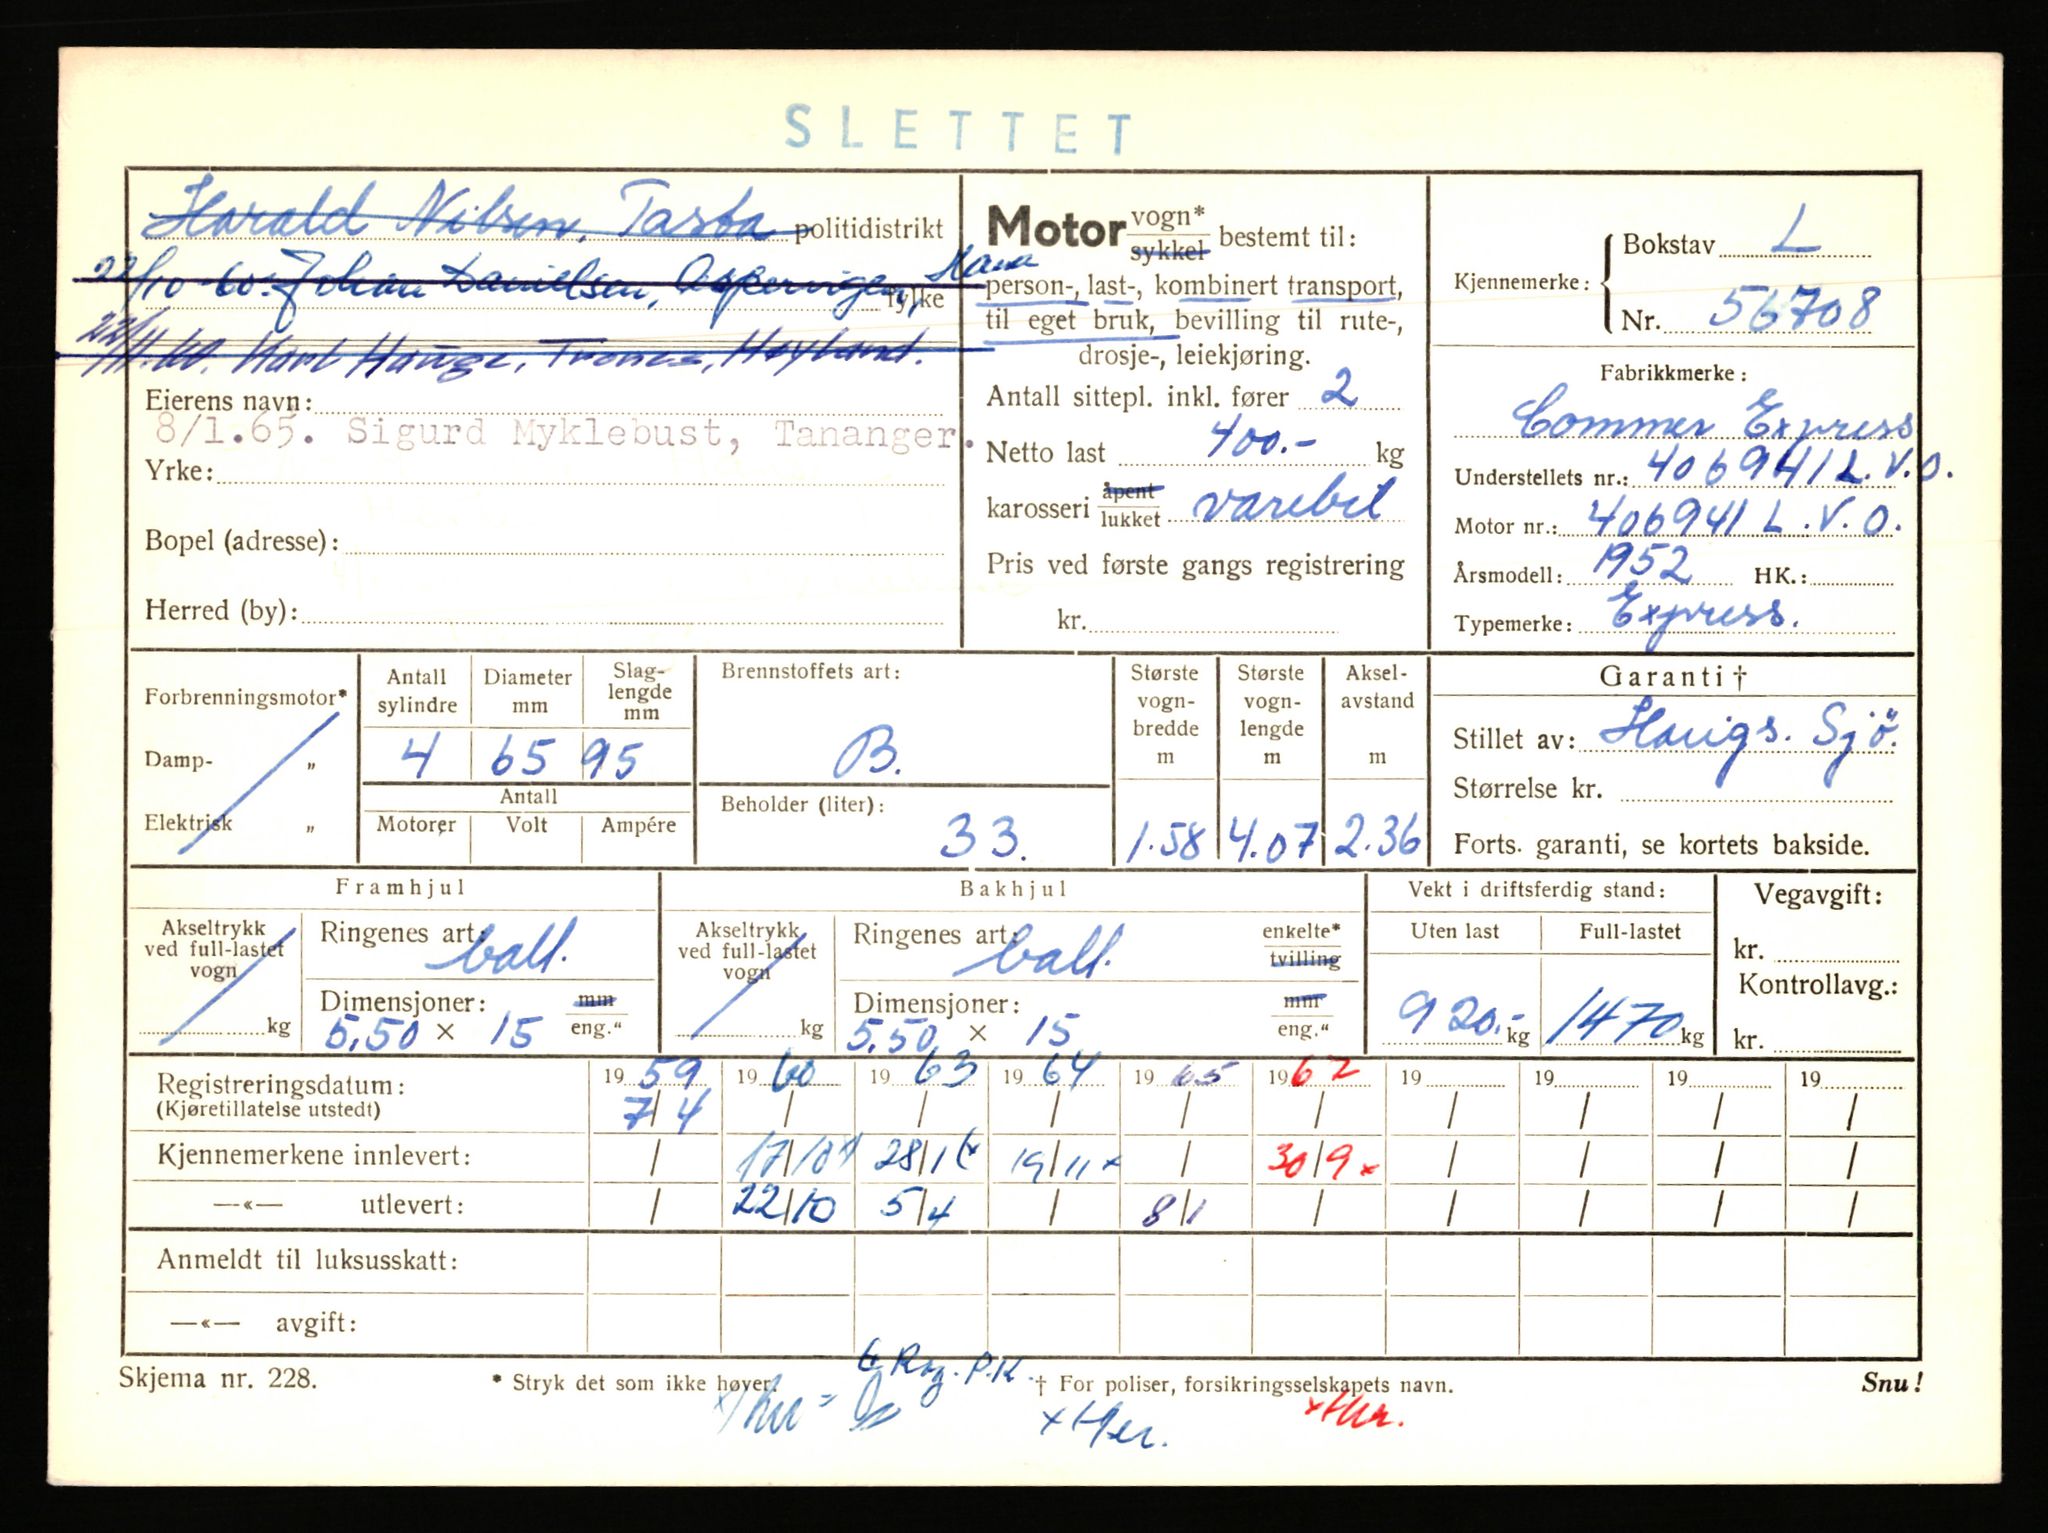 SLETTET
Harald Nilsen, Tasta politidistrikt
22/10-60. Johan Danielsen, Hana
fylke
22/11.60. Karl Hauge, Trones, Høyland.
Eierens navn:
8/1.65. Sigurd Myklebust, Tananger.
Yrke:
Bopel (adresse):
Herred (by):
Motor vogn* sykkel bestemt til:
person-, last-, kombinert transport,
til eget bruk, bevilling til rute-,
drosje-, leiekjøring.
Antall sittepl. inkl. fører 2
Netto last 400.- kg
karosseri åpent lukket varebil
Pris ved første gangs registrering
kr.
Kjennemerke: Bokstav L
Nr. 56708
Fabrikkmerke:
Commer Express
Understellets nr.: 406941 L.V.O.
Motor nr.: 406941 L.V.O.
Årsmodell: 1952 HK.:
Typemerke: Express.
Forbrenningsmotor*
Damp- „
Elektrisk „
Antall sylindre Diameter mm Slag-lengde mm
4 65 95
Antall
Motorer Volt Ampére
Brennstoffets art:
B.
Beholder (liter):
33.
Største vogn-bredde m
1.58
Største vogn-lengde m
4.07
Aksel-avstand m
2.36
Garanti †
Stillet av: Haugs. Sjö.
Størrelse kr.
Forts. garanti, se kortets bakside.
Framhjul
Akseltrykk ved full-lastet vogn
kg
Ringenes art: ball.
Dimensjoner: mm
5,50 × 15 eng.“
Bakhjul
Akseltrykk ved full-lastet vogn
kg
Ringenes art: ball. enkelte* tvilling
Dimensjoner: mm
5,50 × 15 eng.“
Vekt i driftsferdig stand:
Uten last Full-lastet
920.- kg 1470 kg
Vegavgift:
kr.
Kontrollavg.:
kr.
Registreringsdatum: 19 59 19 60 19 63 19 64 19 65 19 62 19 19 19 19
(Kjøretillatelse utstedt) 7/4 / / / / / / / / /
Kjennemerkene innlevert: / 17/10 x 28/1 ( x 19/11 x / 30/9 x / / / /
—«— utlevert: / 22/10 5/4 / 8/1 / / / / /
Anmeldt til luksusskatt:
—«— avgift:
Rog. P.K.
Skjema nr. 228. * Stryk det som ikke høver. † For poliser, forsikringsselskapets navn. Snu!
x Her.